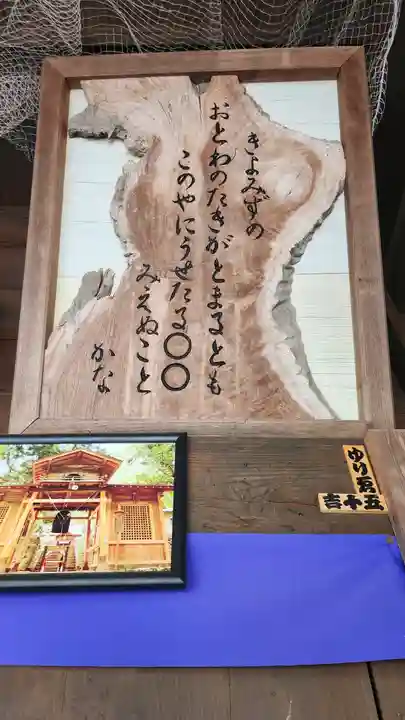 きよみずの
おとわのたきがとまるとも
このやにうせたる〇〇
みえぬこと
かな
ゆり
吉十五